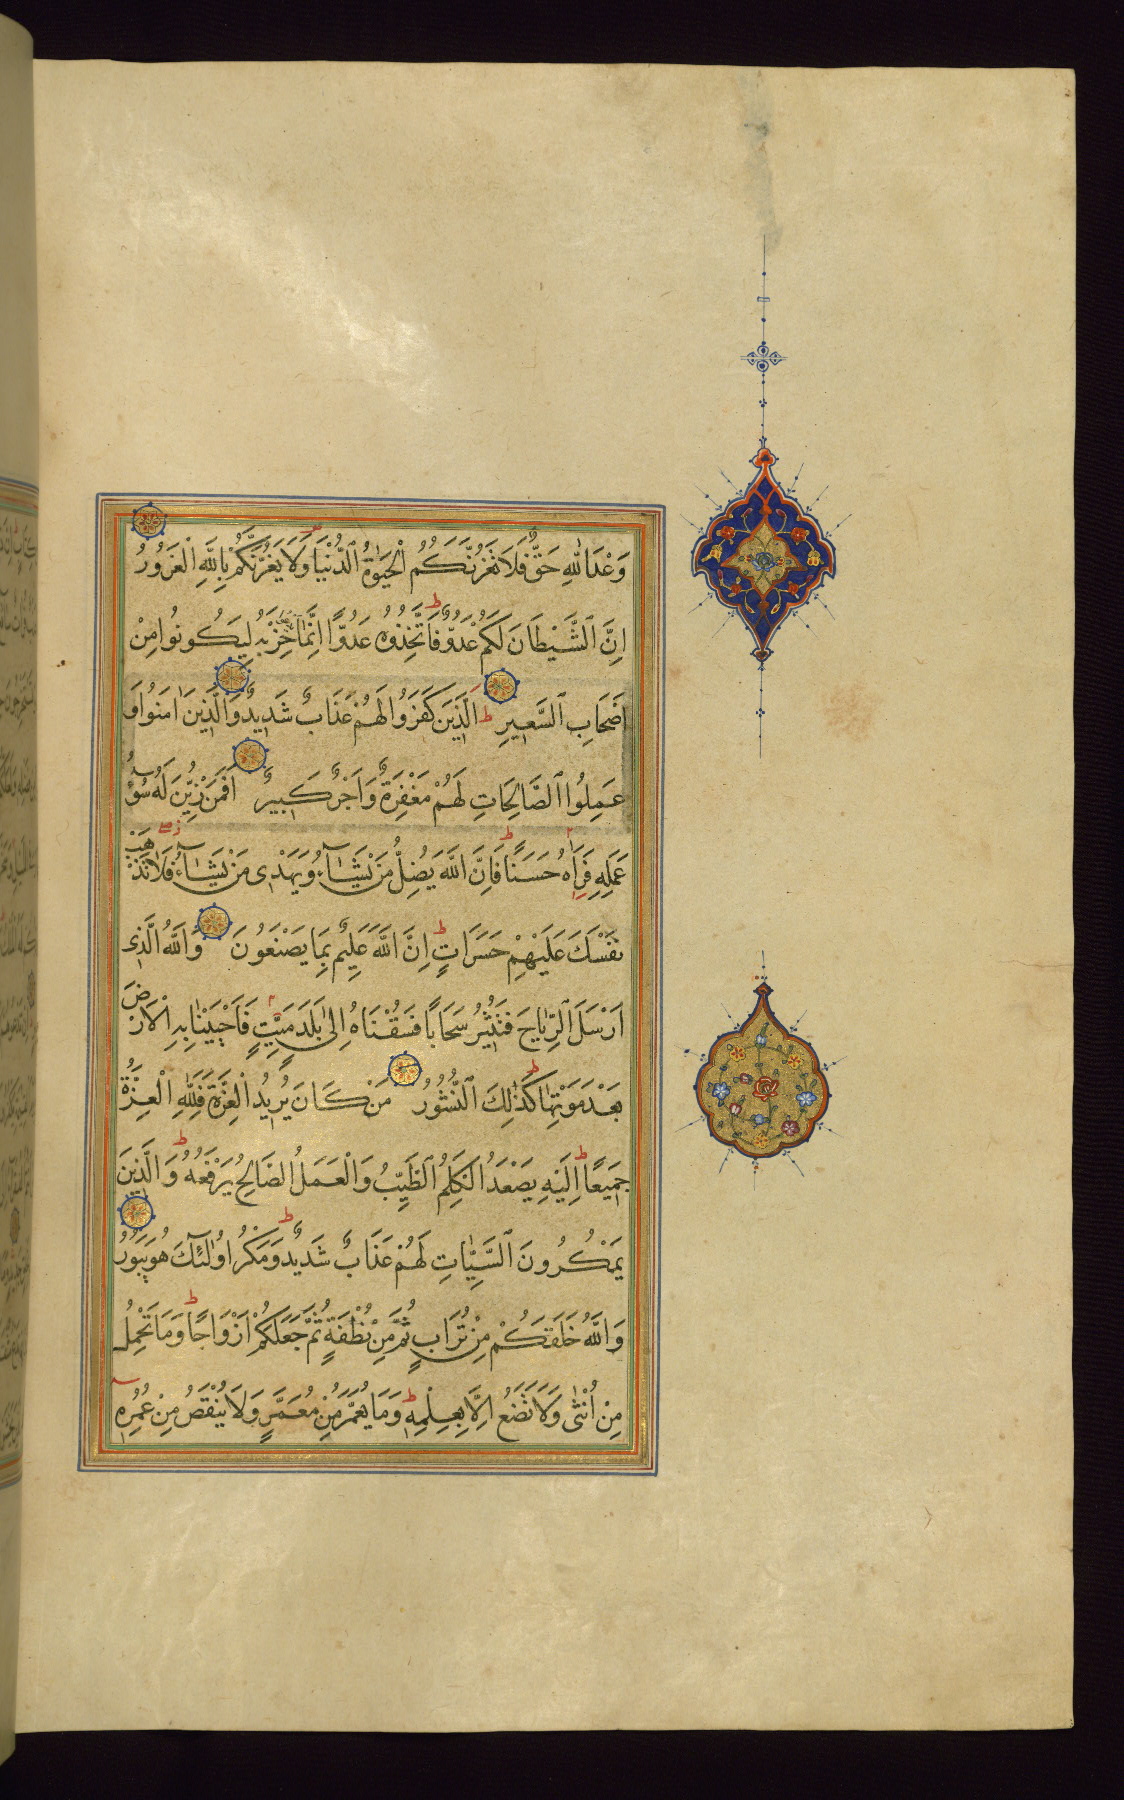 وَعْدَ اللهِ حَقٌّ فَلَا تَغُرَّنَّكُمُ الْحَيٰوةُ الدُّنْيَا وَلَا يَغُرَّنَّكُمْ بِاللَّهِ الْغَرُورُ
اِنَّ الشَّيْطَانَ لَكُمْ عَدُوٌّ فَاتَّخِذُوهُ عَدُوًّا اِنَّمَا يَدْعُوا حِزْبَهُ لِيَكُونُوا مِنْ
اَصْحَابِ السَّعِيرِ اَلَّذِينَ كَفَرُوا لَهُمْ عَذَابٌ شَدِيدٌ وَالَّذِينَ اٰمَنُوا وَ
عَمِلُوا الصَّالِحَاتِ لَهُمْ مَغْفِرَةٌ وَاَجْرٌ كَبِيرٌ اَفَمَنْ زُيِّنَ لَهُ سُوءُ
عَمَلِهِ فَرَاٰهُ حَسَنًا فَاِنَّ اللَّهَ يُضِلُّ مَنْ يَشَآءُ وَيَهْدِى مَنْ يَشَآءُ فَلَا تَذْهَبْ
نَفْسُكَ عَلَيْهِمْ حَسَرَاتٍ اِنَّ اللَّهَ عَلِيمٌ بِمَا يَصْنَعُونَ وَاللَّهُ الَّذِى
اَرْسَلَ الرِّيَاحَ فَتُثِيرُ سَحَابًا فَسُقْنَاهُ اِلٰى بَلَدٍ مَيِّتٍ فَاَحْيَيْنَا بِهِ الْاَرْضَ
بَعْدَ مَوْتِهَا كَذٰلِكَ النُّشُورُ مَنْ كَانَ يُرِيدُ الْعِزَّةَ فَلِلّٰهِ الْعِزَّةُ
جَمِيعًا اِلَيْهِ يَصْعَدُ الْكَلِمُ الطَّيِّبُ وَالْعَمَلُ الصَّالِحُ يَرْفَعُهُ وَالَّذِينَ
يَمْكُرُونَ السَّيِّئَاتِ لَهُمْ عَذَابٌ شَدِيدٌ وَمَكْرُ اُولٰئِكَ هُوَ يَبُورُ
وَاللَّهُ خَلَقَكُمْ مِنْ تُرَابٍ ثُمَّ مِنْ نُطْفَةٍ ثُمَّ جَعَلَكُمْ اَزْوَاجًا وَمَا تَحْمِلُ
مِنْ اُنْثٰى وَلَا تَضَعُ اِلَّا بِعِلْمِهِ وَمَا يُعَمَّرُ مِنْ مُعَمَّرٍ وَلَا يُنْقَصُ مِنْ عُمُرِهِ